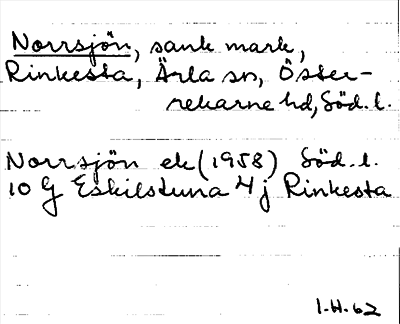 Norrsjön, sank mark,
Rinkesta, Ärla sn, Öster-
rekarne hd, Söd. l.
Norrsjön ek (1958) Söd. l.
10 G Eskilstuna 4 j Rinkesta
1.H.62